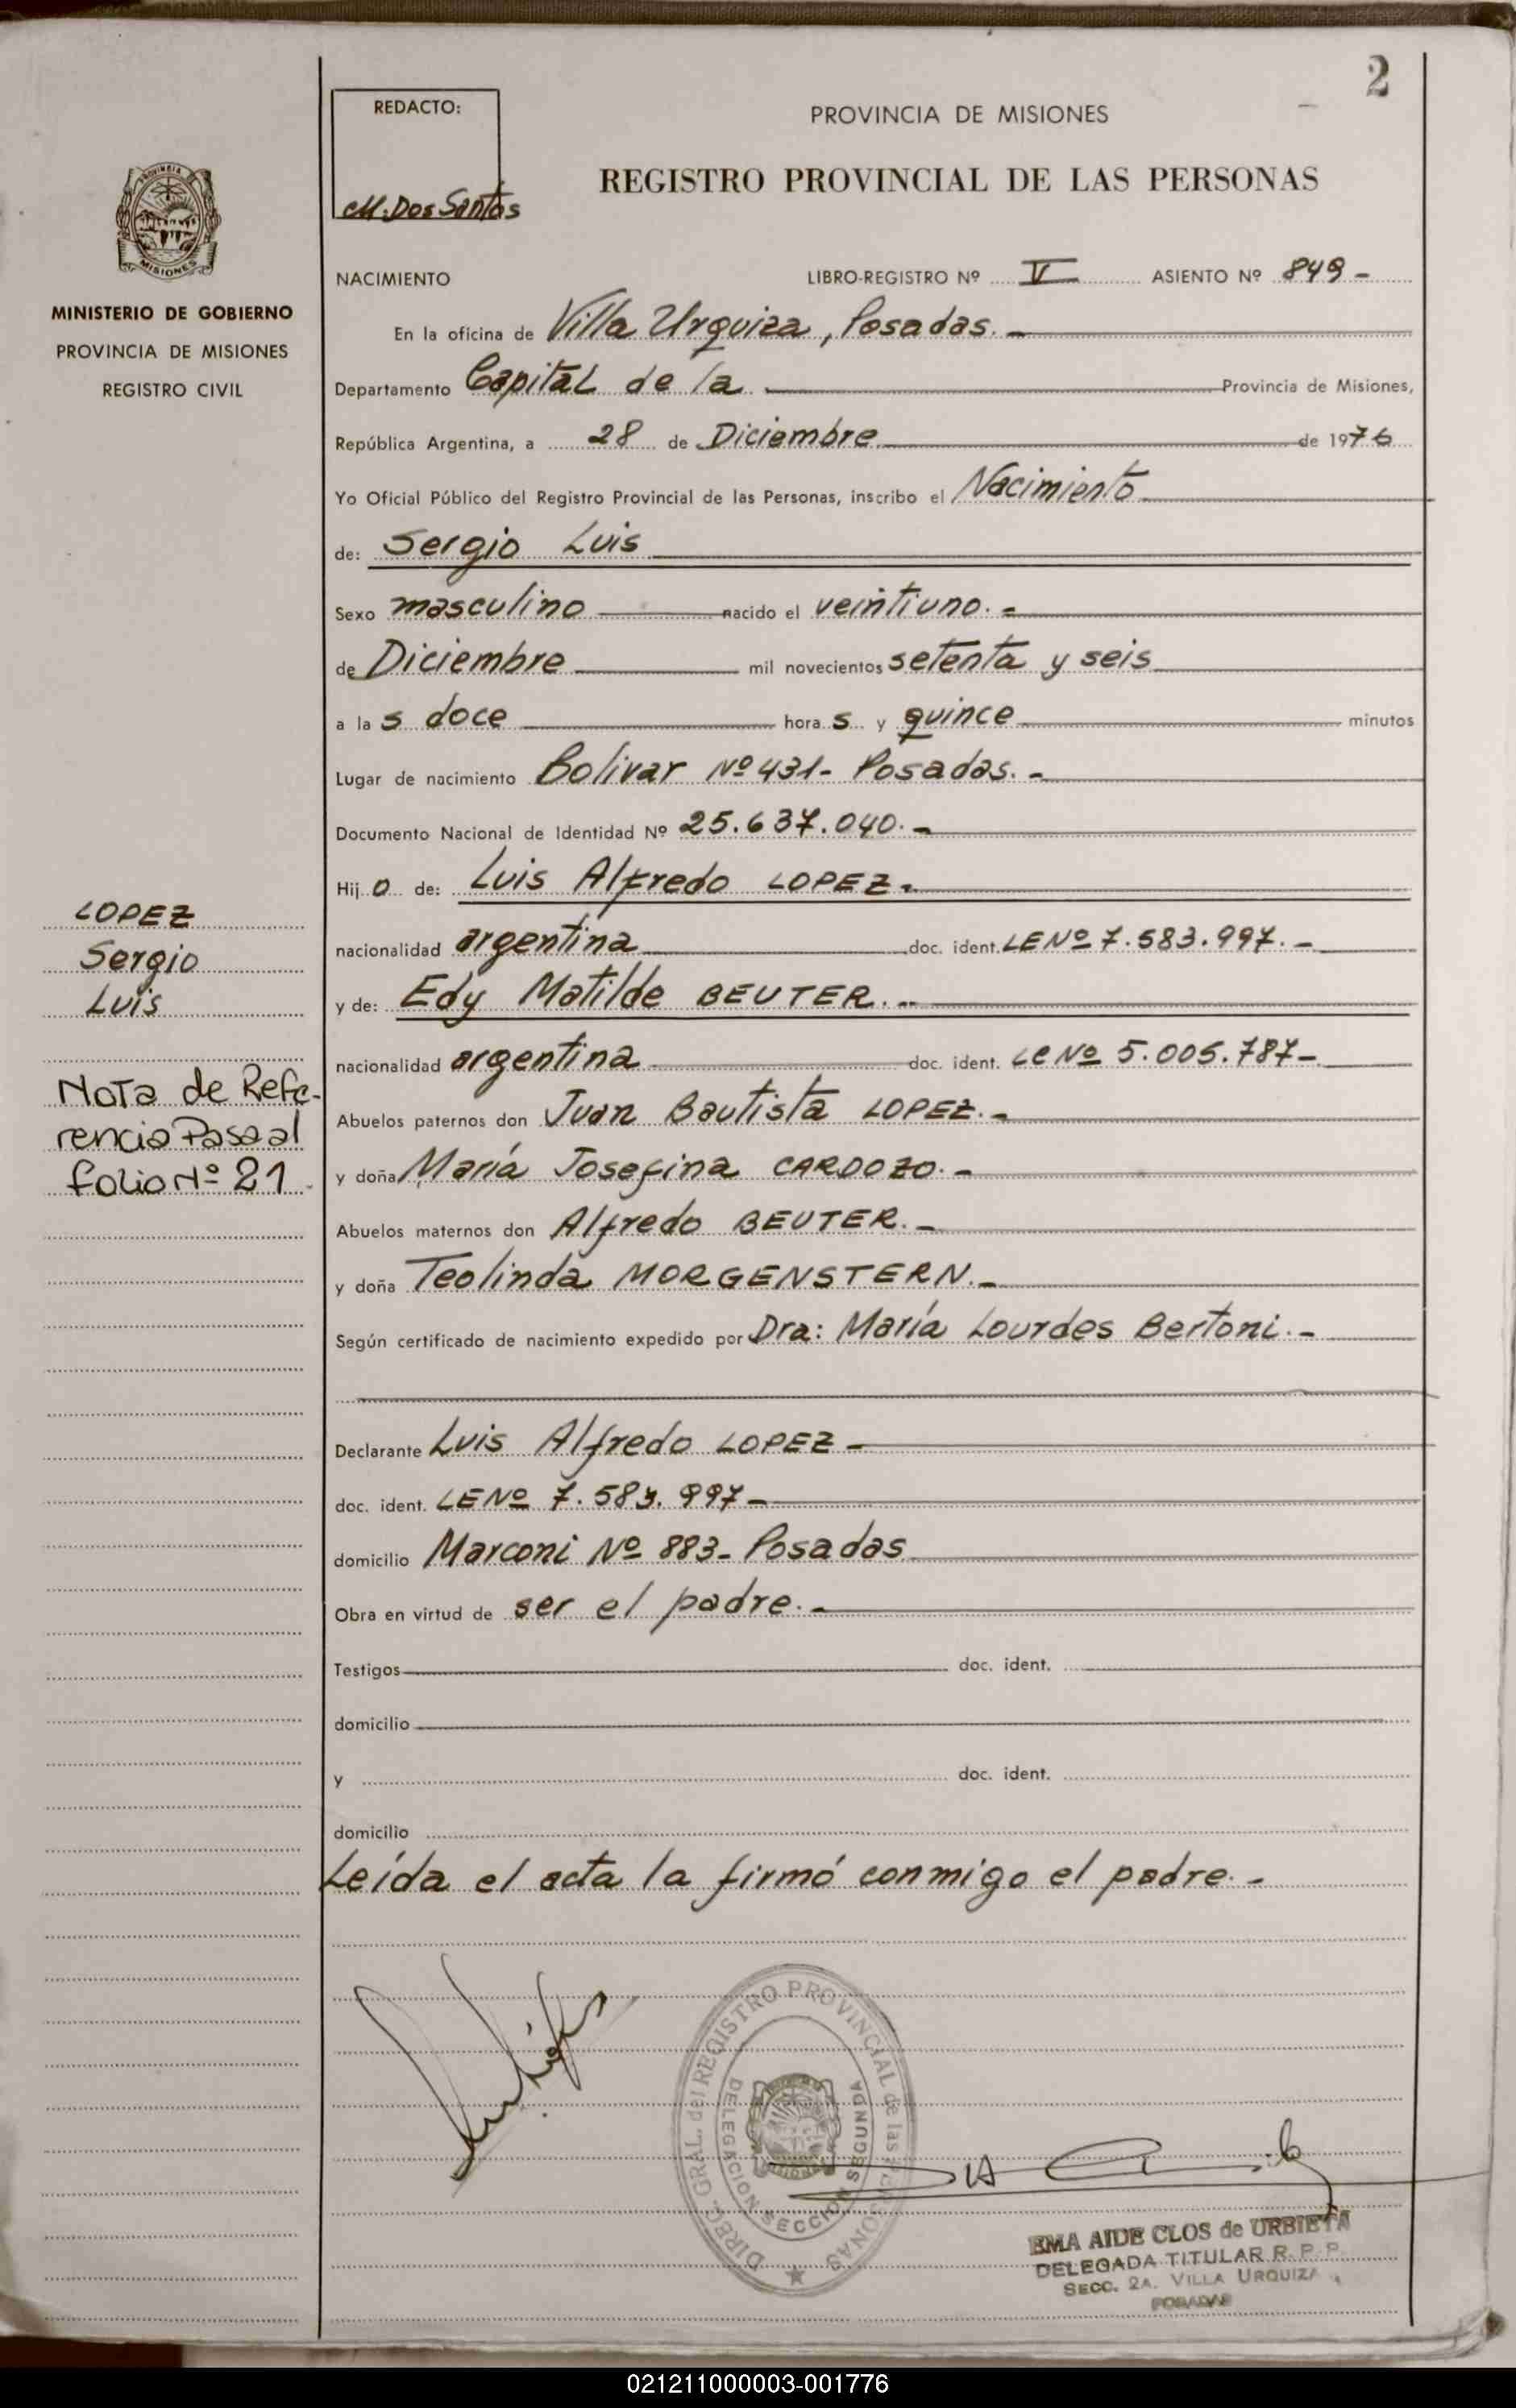 2
REDACTO:
M. Dos Santos
PROVINCIA DE MISIONES
REGISTRO PROVINCIAL DE LAS PERSONAS
PROVINCIA
MISIONES
MINISTERIO DE GOBIERNO
PROVINCIA DE MISIONES
REGISTRO CIVIL
NACIMIENTO LIBRO-REGISTRO Nº V ASIENTO Nº 849 -
En la oficina de Villa Urquiza, Posadas. -
Departamento Capital de la Provincia de Misiones,
República Argentina, a 28 de Diciembre de 1976
Yo Oficial Público del Registro Provincial de las Personas, inscribo el Nacimiento
de: Sergio Luis
Sexo masculino nacido el veintiuno. -
de Diciembre mil novecientos setenta y seis
a la s doce hora s y quince minutos
Lugar de nacimiento Bolivar Nº 431- Posadas. -
Documento Nacional de Identidad Nº 25.637.040. -
Hij o de: Luis Alfredo LOPEZ. -
nacionalidad argentina doc. ident. LE Nº 7.583.997. -
y de: Edy Matilde BEUTER. -
nacionalidad argentina doc. ident. LC Nº 5.005.787 -
Abuelos paternos don Juan Bautista LOPEZ. -
y doña María Josefina CARDOZO. -
Abuelos maternos don Alfredo BEUTER. -
y doña Teolinda MORGENSTERN. -
Según certificado de nacimiento expedido por Dra: María Lourdes Bertoni. -
Declarante Luis Alfredo LOPEZ -
doc. ident. LE Nº 7.583.997 -
domicilio Marconi Nº 883- Posadas
Obra en virtud de ser el padre. -
Testigos doc. ident.
domicilio
y doc. ident.
domicilio
Leída el acta la firmó conmigo el padre. -
LOPEZ
Sergio
Luis
Nota de Refe-
rencia Pasa al
folio Nº 21
DIREC. GRAL. del REGISTRO PROVINCIAL de las PERSONAS
DELEGACION SECCION SEGUNDA
EMA AIDE CLOS de URBIETA
DELEGADA TITULAR R. P. P.
SECC. 2A. VILLA URQUIZA
POSADAS
021211000003-001776